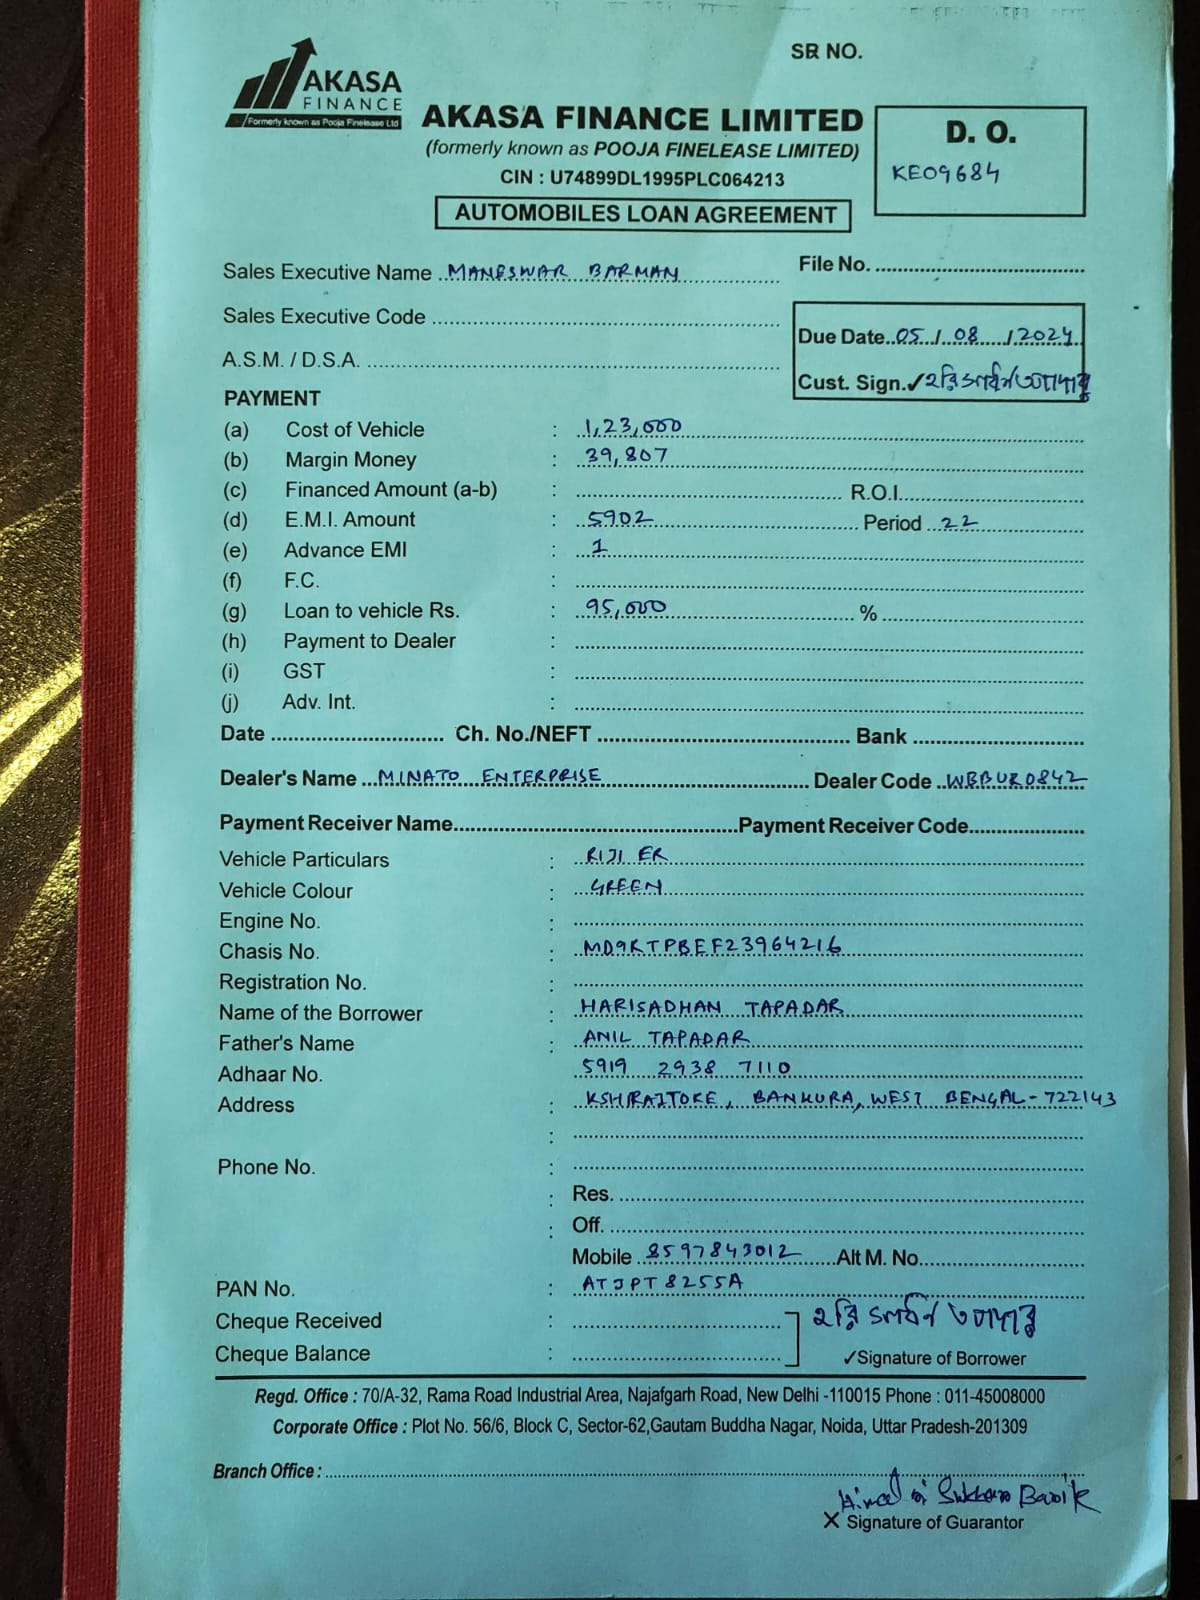 SR NO.
AKASA
FINANCE
Formerly known as Pooja Finelease Ltd
AKASA FINANCE LIMITED
(formerly known as POOJA FINELEASE LIMITED)
CIN : U74899DL1995PLC064213
AUTOMOBILES LOAN AGREEMENT
D. O.
KE09684
Sales Executive Name MANESWAR BARMAN
File No.
Sales Executive Code
Due Date 05/08/2024
A.S.M. / D.S.A.
Cust. Sign. ✓ হরিসাধন তপাদার
PAYMENT
(a) Cost of Vehicle : 1,23,000
(b) Margin Money : 39,807
(c) Financed Amount (a-b) : R.O.I.
(d) E.M.I. Amount : 5902 Period 22
(e) Advance EMI : 1
(f) F.C. :
(g) Loan to vehicle Rs. : 95,000 %
(h) Payment to Dealer :
(i) GST :
(j) Adv. Int. :
Date Ch. No./NEFT Bank
Dealer's Name MINATO ENTERPRISE Dealer Code WBBUR0842
Payment Receiver Name Payment Receiver Code
Vehicle Particulars : RIJI ER
Vehicle Colour : GREEN
Engine No. :
Chasis No. : MD9KTPBEF23964216
Registration No. :
Name of the Borrower : HARISADHAN TAPADAR
Father's Name : ANIL TAPADAR
Adhaar No. 5919 2938 7110
Address : BANKURA, WEST BENGAL-722143
:
Phone No. :
: Res.
: Off.
Mobile 8597843012 Alt M. No.
PAN No. : ATJPT8255A
Cheque Received : হরিসাধন তপাদার
Cheque Balance : ✓Signature of Borrower
Regd. Office : 70/A-32, Rama Road Industrial Area, Najafgarh Road, New Delhi -110015 Phone : 011-45008000
Corporate Office : Plot No. 56/6, Block C, Sector-62,Gautam Buddha Nagar, Noida, Uttar Pradesh-201309
Branch Office :
X Signature of Guarantor